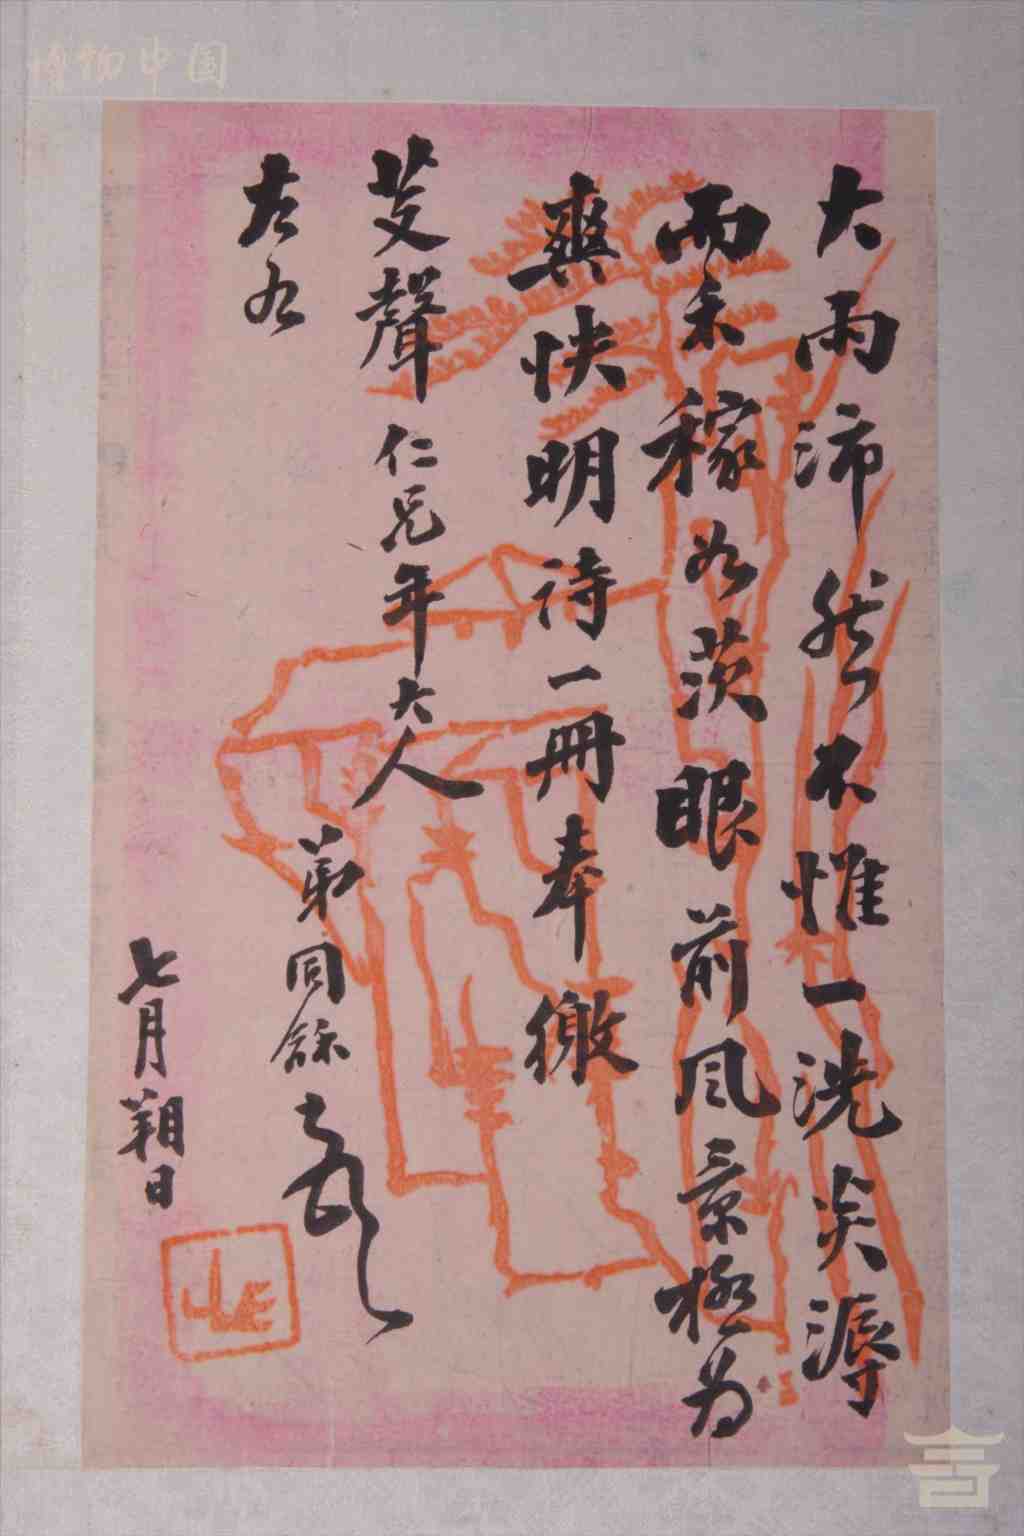 大雨沛然不惟一洗炎溽
而禾稼如茨眼前风景极为
爽快明诗一冊奉缴
芰聲仁兄年大人
左右
弟同龢頓
七月朔日
博物中国